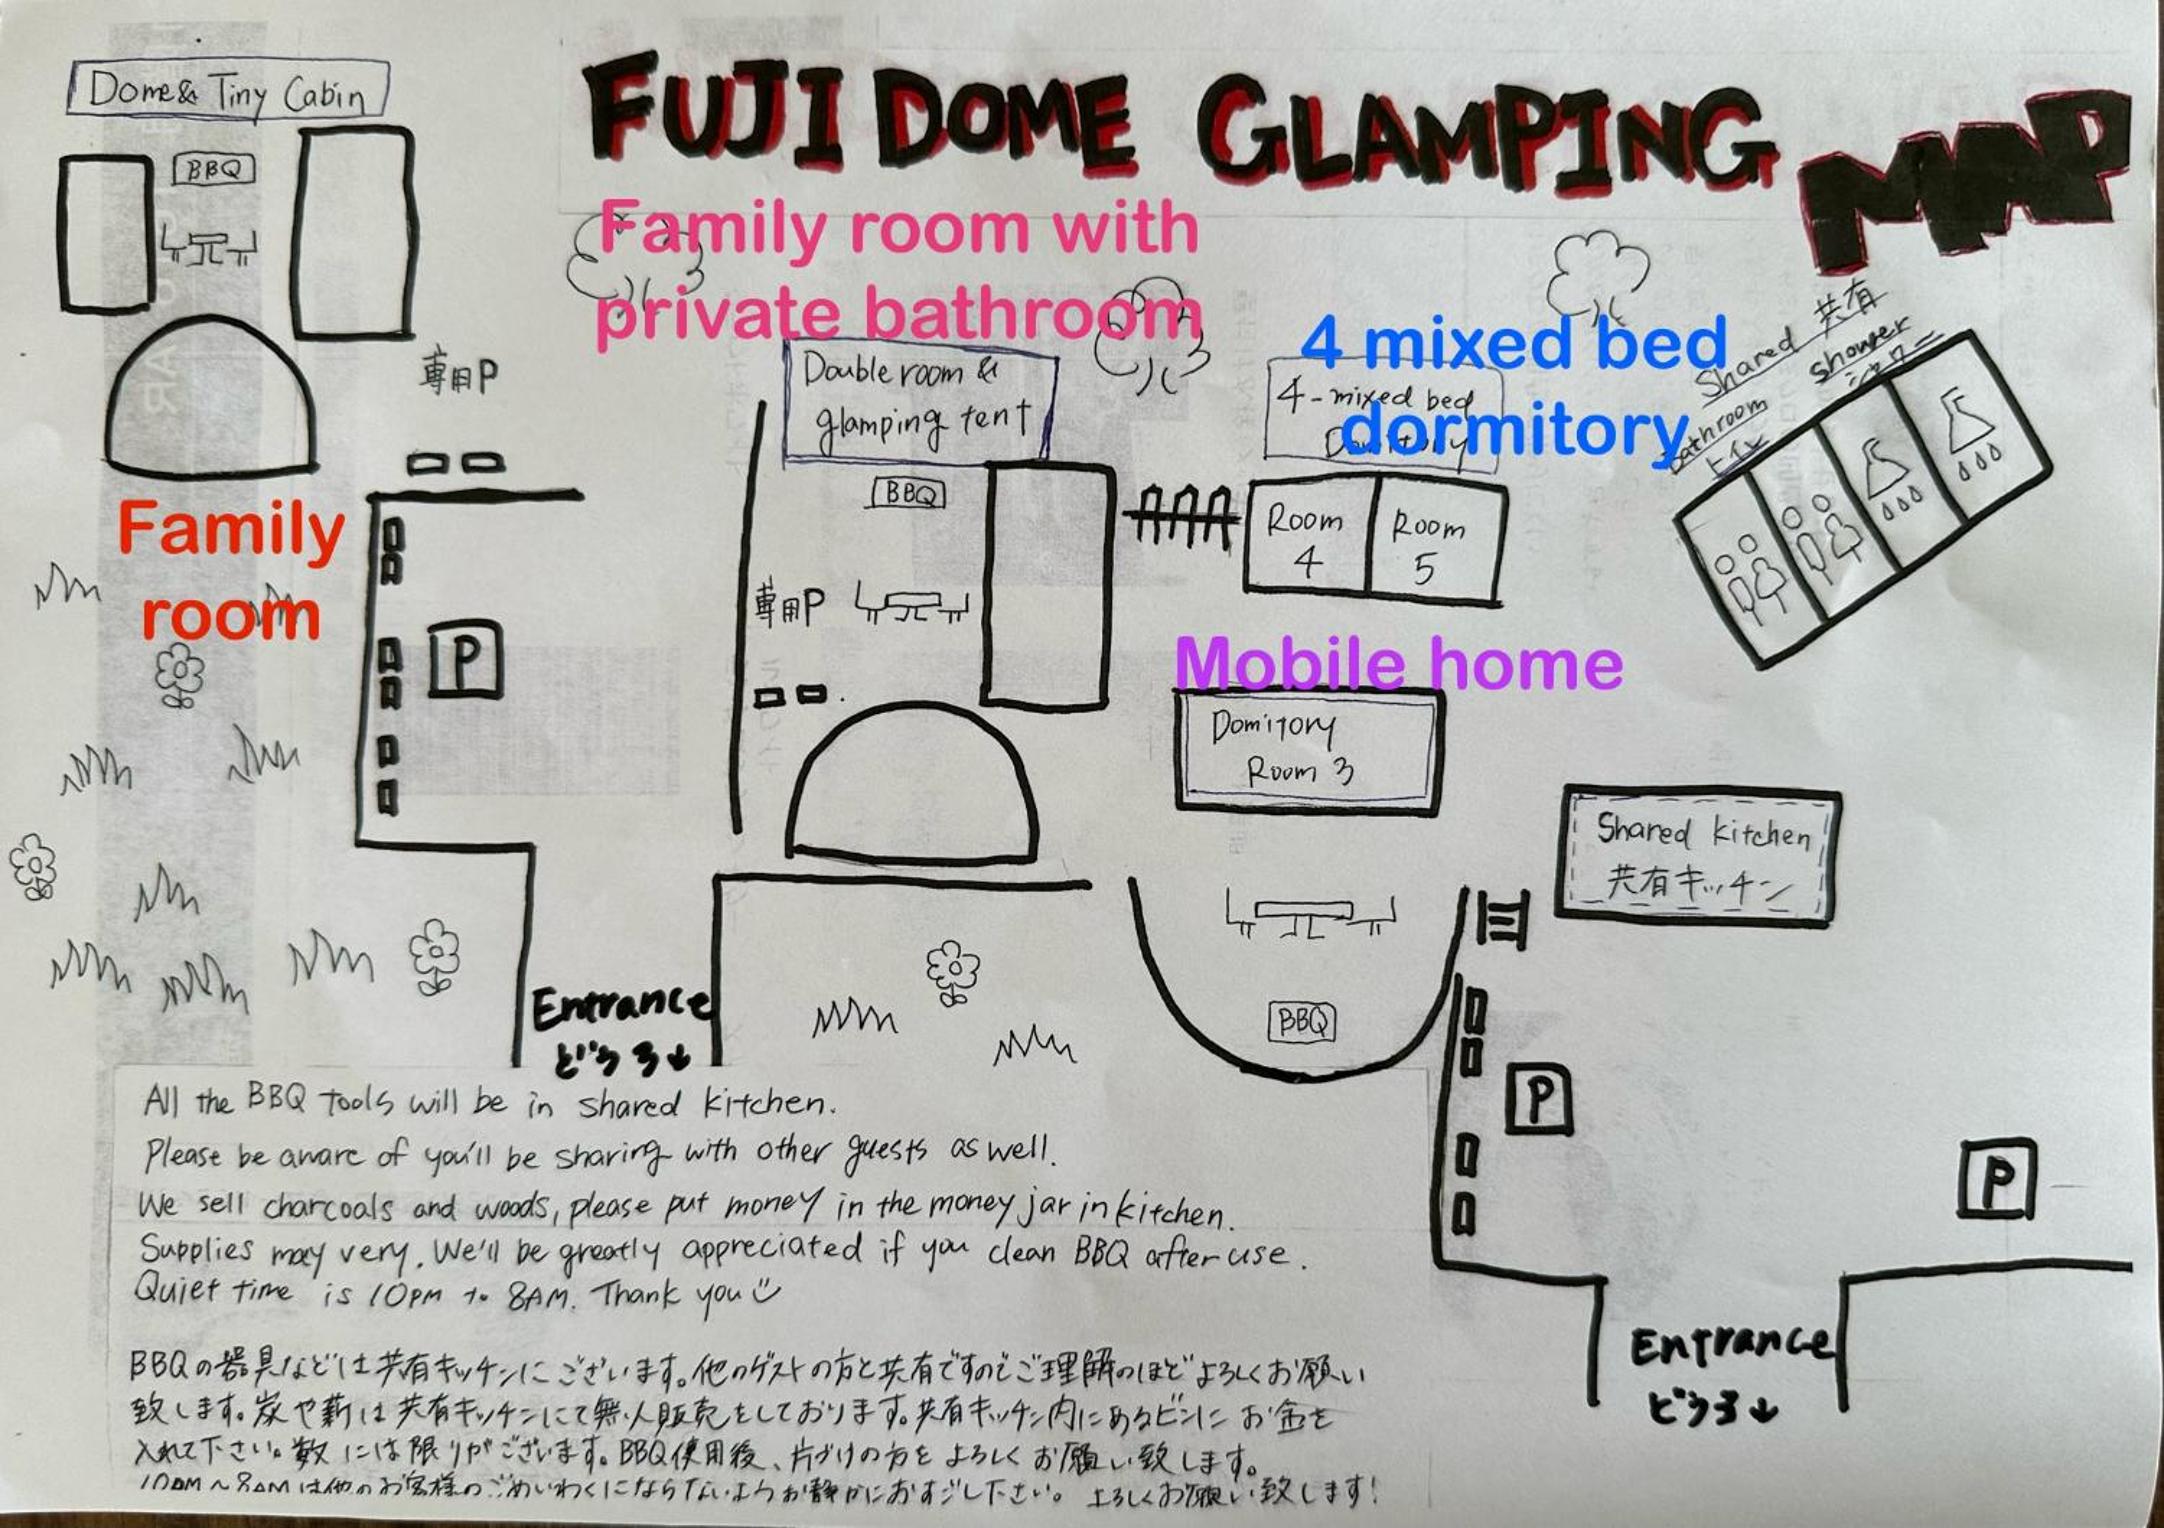 FUJI DOME GLAMPING MAP
Dome & Tiny Cabin
BBQ
専用P
Family
room
P
Family room with
private bathroom
Double room &
glamping tent
BBQ
専用P
4 mixed bed
dormitory
4-mixed bed
Room
4
Room
5
Shared 共有
Bathroom
トイレ
shower
シャワー
Mobile home
Domitory
Room 3
Shared kitchen
共有キッチン
BBQ
P
P
Entrance
どうろ↓
Entrance
どうろ↓
All the BBQ tools will be in shared kitchen.
Please be aware of you'll be sharing with other guests as well.
We sell charcoals and woods, please put money in the money jar in kitchen.
Supplies may very. We'll be greatly appreciated if you clean BBQ after use.
Quiet time is 10PM to 8AM. Thank you
BBQの器具などは共有キッチンにございます。他のゲストの方と共有ですのでご理解のほどよろしくお願い
致します。炭や薪は共有キッチンにて無人販売をしております。共有キッチン内にあるビンにお金を
入れて下さい。数には限りがございます。BBQ使用後、片づけの方をよろしくお願い致します。
10PM～8AMは他のお客様のごめいわくにならないようお静かにおすごし下さい。よろしくお願い致します!